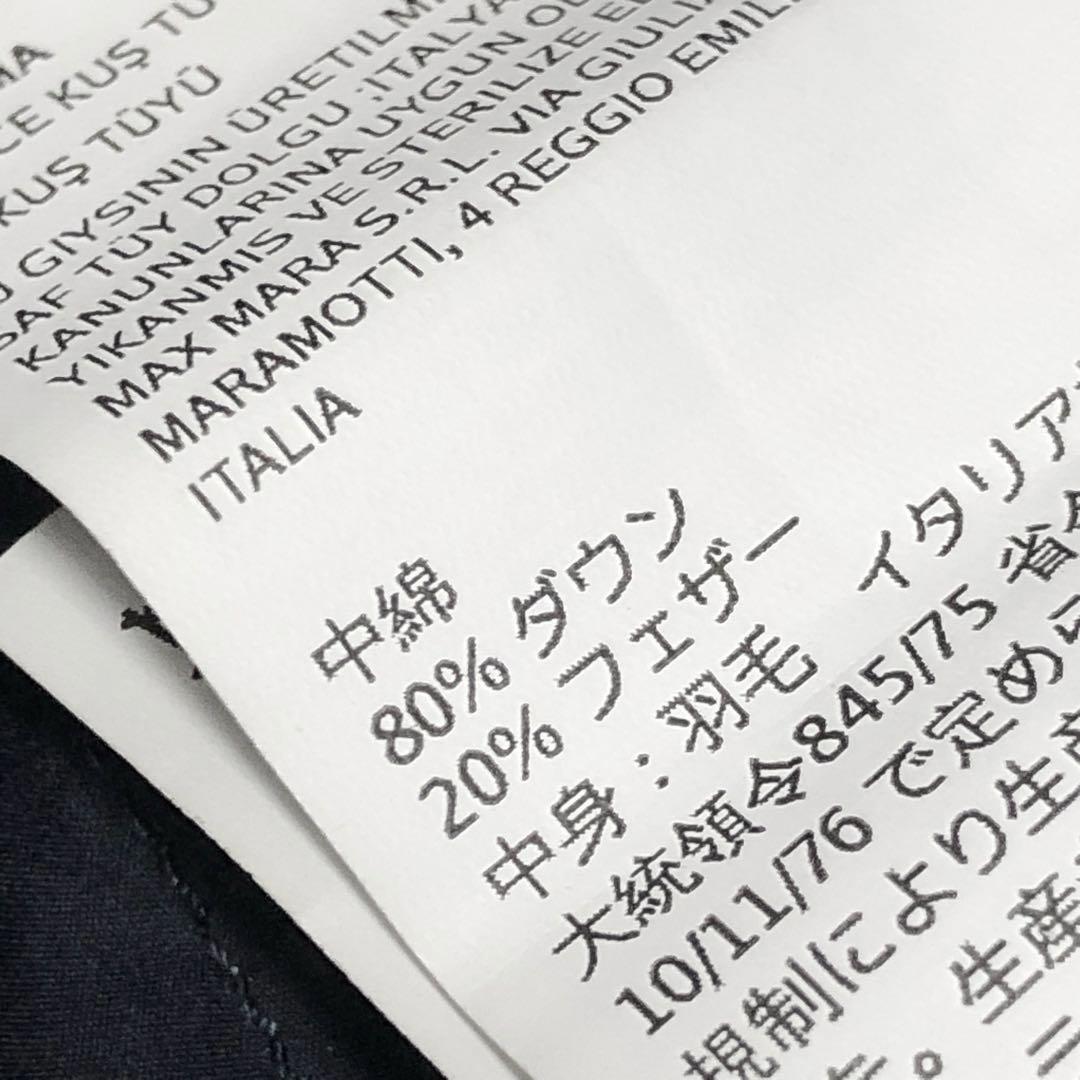 CE KUŞ TÜ
KUŞ TÜYÜ
GIYSININ ÜRETILM
SAF TÜY DOLGU ;ITALYA
KANUNLARINA UYGUN OL
YIKANMIS VE STERILIZE E
MAX MARA S.R.L. VIA GIULIA
MARAMOTTI, 4 REGGIO EMIL
ITALIA
中綿
80% ダウン
20% フェザー
中身：羽毛 イタリア
大統領令845/75 省
10/11/76 で定め
規制により生産
生産